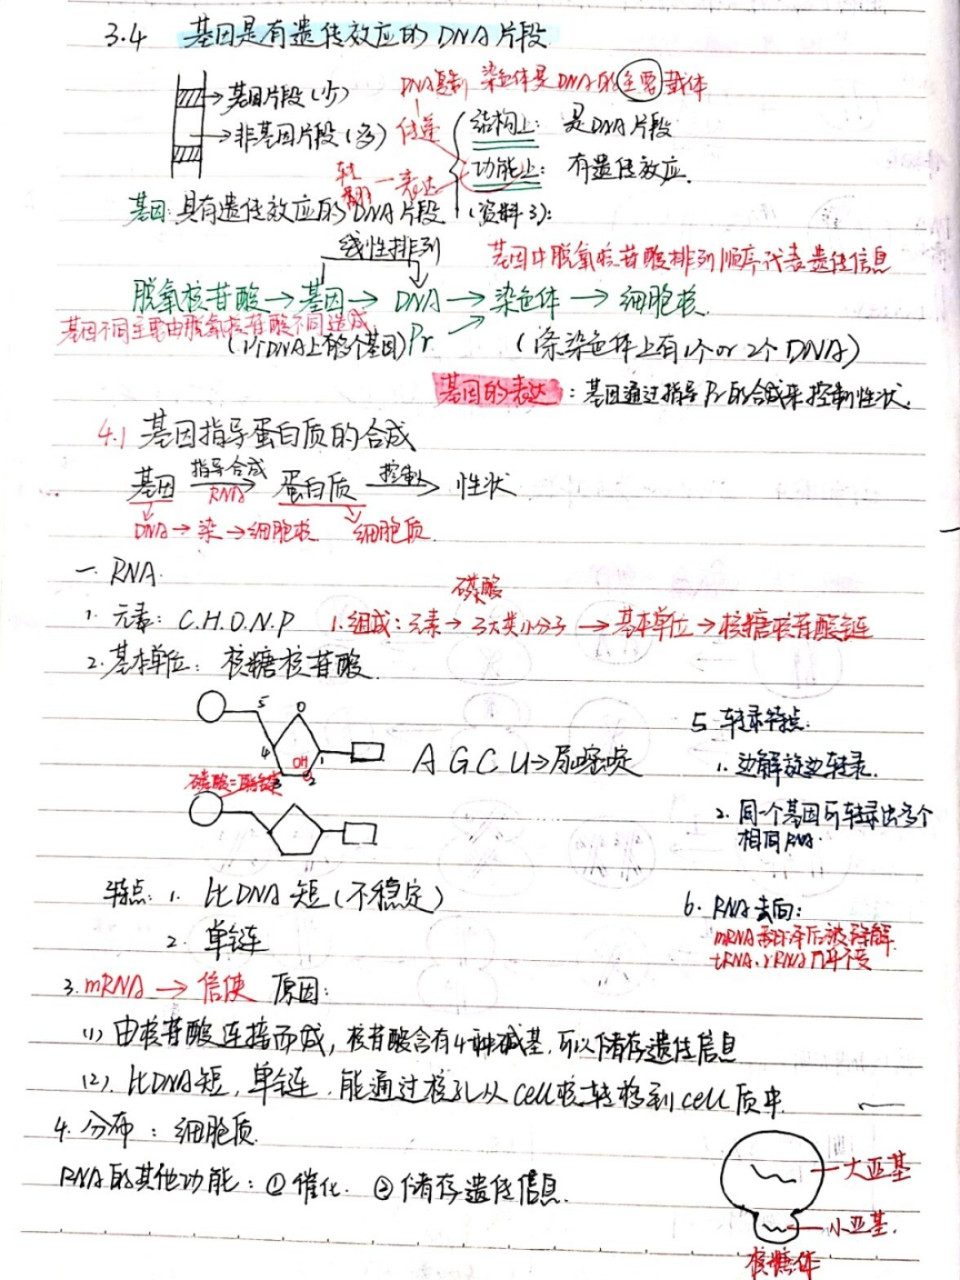 3.4 基因是有遗传效应的DNA片段
基因片段(少)
非基因片段(多)
DNA复制
染色体是DNA的主要载体
传递
结构上: 是DNA片段
功能上: 有遗传效应.
转
翻
表达
基因:具有遗传效应的DNA片段 (资料3):
线性排列
基因中脱氧核苷酸排列顺序代表遗传信息
脱氧核苷酸→基因→DNA→染色体→细胞核.
基因不同主要由脱氧核苷酸不同造成
(1个DNA上有多个基因) Pr
(1条染色体上有1个or 2个DNA)
基因的表达:基因通过指导Pr的合成来控制性状.
4.1 基因指导蛋白质的合成
基因 指导合成 RNA→ 蛋白质 控制→ 性状
DNA→染→细胞核 细胞质
一. RNA.
1. 元素: C.H.O.N.P
磷酸
1.组成:元素→3大类小分子→基本单位→核糖核苷酸链
2.基本单位: 核糖核苷酸.
5 O
4 1
OH
3 2
A G C U→尿嘧啶
5. 转录特点.
1. 边解旋边转录.
2. 同一个基因可转录出多个
相同RNA.
特点: 1. 比DNA短(不稳定)
2. 单链
6. RNA去向:
mRNA翻译后被降解
tRNA、rRNA
3. mRNA→信使 原因:
(1) 由核苷酸连接而成, 核苷酸含有4种碱基, 可以储存遗传信息
(2). 比DNA短, 单链. 能通过核孔从cell核转移到cell质中.
4. 分布: 细胞质.
RNA的其他功能: ①催化. ②储存遗传信息.
大亚基
小亚基.
核糖体